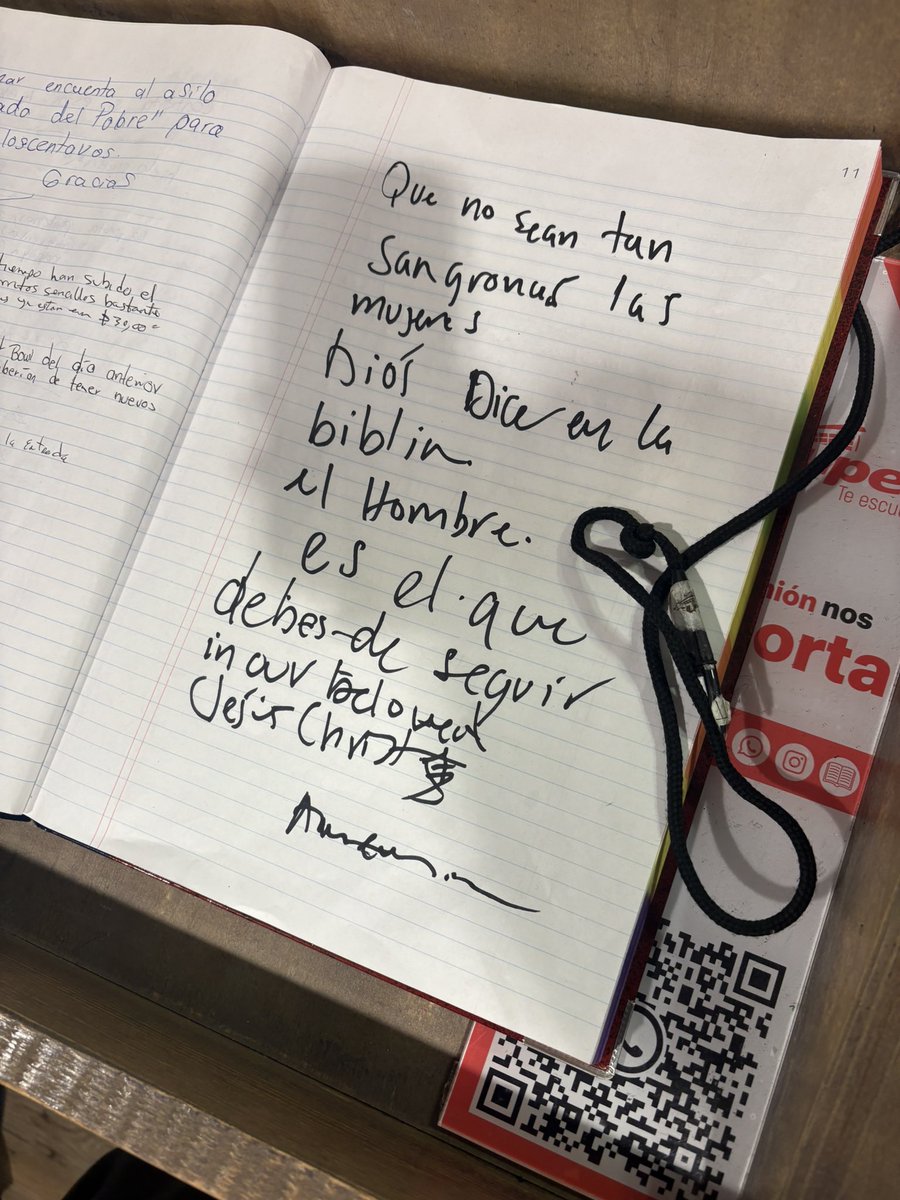 zar encuenta al asilo
ado del Pobre" para
loscentavos.
Gracias
tiempo han subido el
sencillos bastante
$39,00
Bowl del día anterior
berían de tener nuevos
la Entrada
11
Que no sean tan
Sangronas las
mujeres
Diós Dice en la
biblia.
el Hombre.
es el que
debes-de seguir
in our beloved
Jesús Christ
pe
Te escu
nión nos
orta